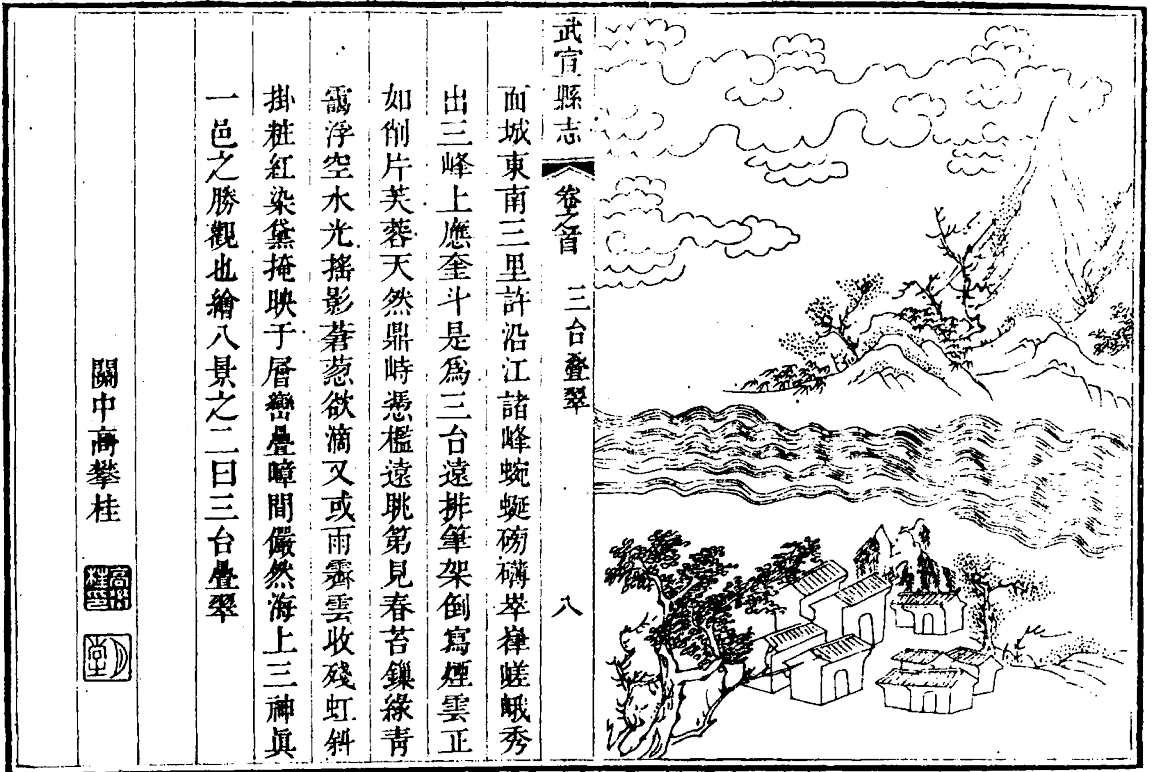 武宣縣志
卷之首
三台疊翠
八
面城東南三里許沿江諸峰蜿蜒磅礴崒嵂嵯峨秀
出三峰上應奎斗是爲三台遠排筆架倒寫煙雲正
如削片芙蓉天然鼎峙憑檻遠眺第見春苔鏁綠青
靄浮空水光搖影蒼葱欲滴又或雨霽雲收殘虹斜
掛粧紅染黛掩映于層巒疊嶂間儼然海上三神眞
一邑之勝觀也繪八景之二曰三台疊翠
關中高攀桂